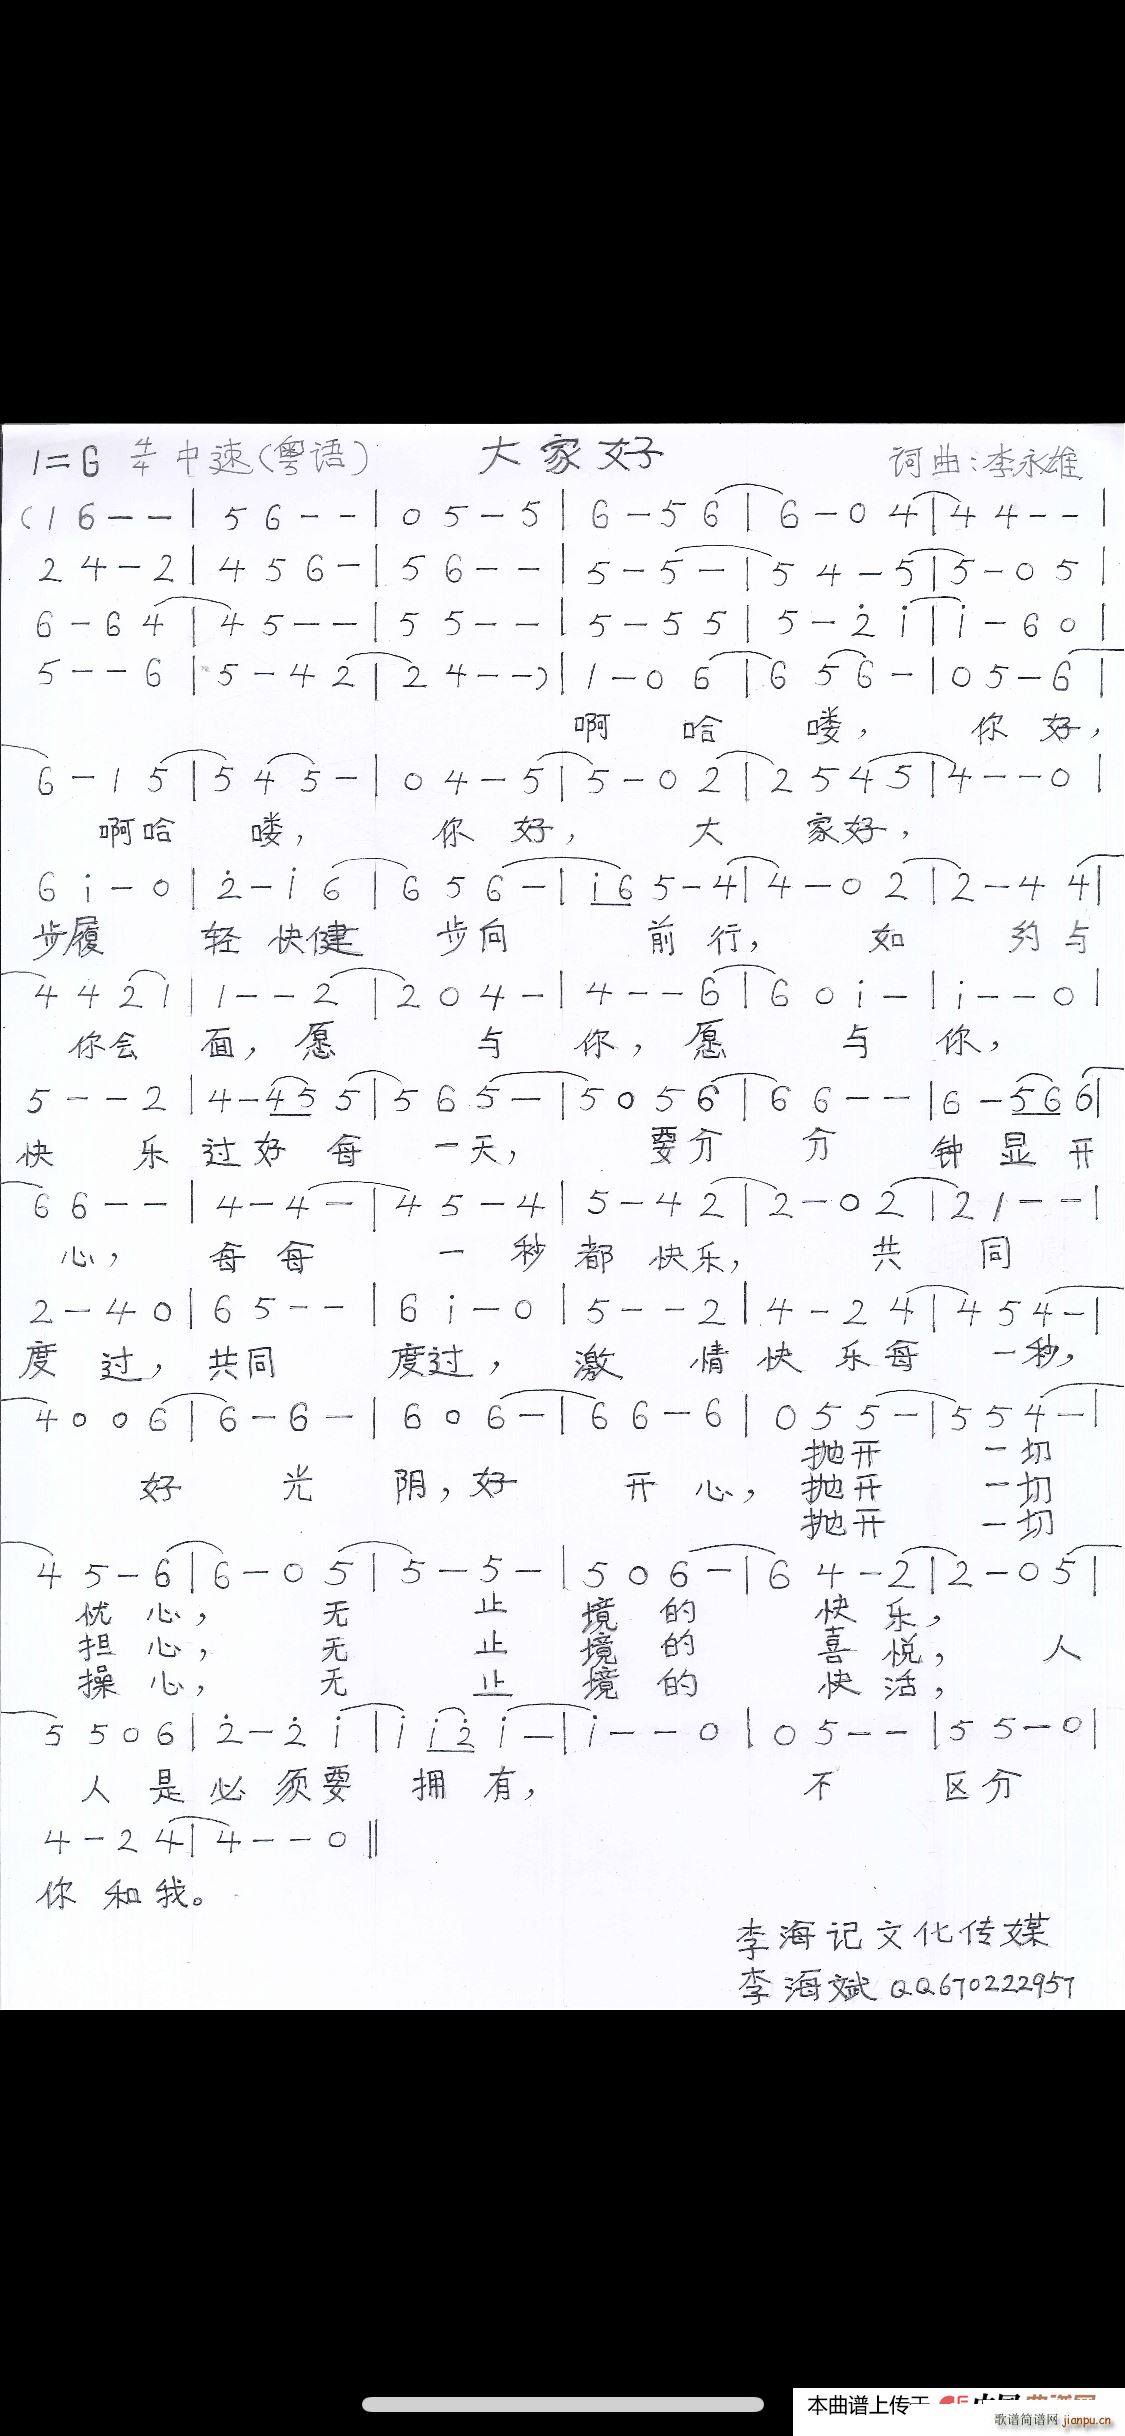 1=G 4/4 中速(粤语) 大家好 词曲:李永雄
(1 6 - - | 5 6 - - | 0 5 - 5 | 6 - 5 6 | 6 - 0 4 | 4 4 - - |
2 4 - 2 | 4 5 6 - | 5 6 - - | 5 - 5 - | 5 4 - 5 | 5 - 0 5 |
6 - 6 4 | 4 5 - - | 5 5 - - | 5 - 5 5 | 5 - 2̇ i | i - 6 0 |
5 - - 6 | 5 - 4 2 | 2 4 - -) | 1 - 0 6 | 6 5 6 - | 0 5 - 6 |
啊 哈 喽, 你 好,
6 - 1 5 | 5 4 5 - | 0 4 - 5 | 5 - 0 2 | 2 5 4 5 | 4 - - 0 |
啊哈 喽, 你 好, 大 家好,
6 i - 0 | 2̇ - i 6 | 6 5 6 - | i6 5 - 4 | 4 - 0 2 | 2 - 4 4 |
步履 轻 快健 步向 前 行, 如 约 与
4 4 2 1 | 1 - - 2 | 2 0 4 - | 4 - - 6 | 6 0 i - | i - - 0 |
你会 面, 愿 与 你, 愿 与 你,
5 - - 2 | 4 - 45 5 | 5 6 5 - | 5 0 5 6 | 6 6 - - | 6 - 56 6 |
快 乐 过好 每 一天, 要分 分 钟 显 开
6 6 - - | 4 - 4 - | 4 5 - 4 | 5 - 4 2 | 2 - 0 2 | 2 1 - - |
心, 每 每 一 秒 都 快乐, 共 同
2 - 4 0 | 6 5 - - | 6 i - 0 | 5 - - 2 | 4 - 2 4 | 4 5 4 - |
度 过, 共同 度过, 激 情 快 乐 每 一秒,
4 0 0 6 | 6 - 6 - | 6 0 6 - | 6 6 - 6 | 0 5 5 - | 5 5 4 - |
抛开 一切
好 光 阴, 好 开 心, 抛开 一切
抛开 一切
4 5 - 6 | 6 - 0 5 | 5 - 5 - | 5 0 6 - | 6 4 - 2 | 2 - 0 5 |
忧 心, 无 止 境 的 快 乐,
担 心, 无 止 境 的 喜 悦, 人
操 心, 无 止 境 的 快 活,
5 5 0 6 | 2̇ - 2̇ i | i i2̇ i - | i - - 0 | 0 5 - - | 5 5 - 0 |
人 是 必 须 要 拥 有, 不 区分
4 - 2 4 | 4 - - 0 ‖
你 和 我。
李海记文化传媒
李海斌 QQ670222957
本曲谱上传于
歌谱简谱网 jianpu.cn